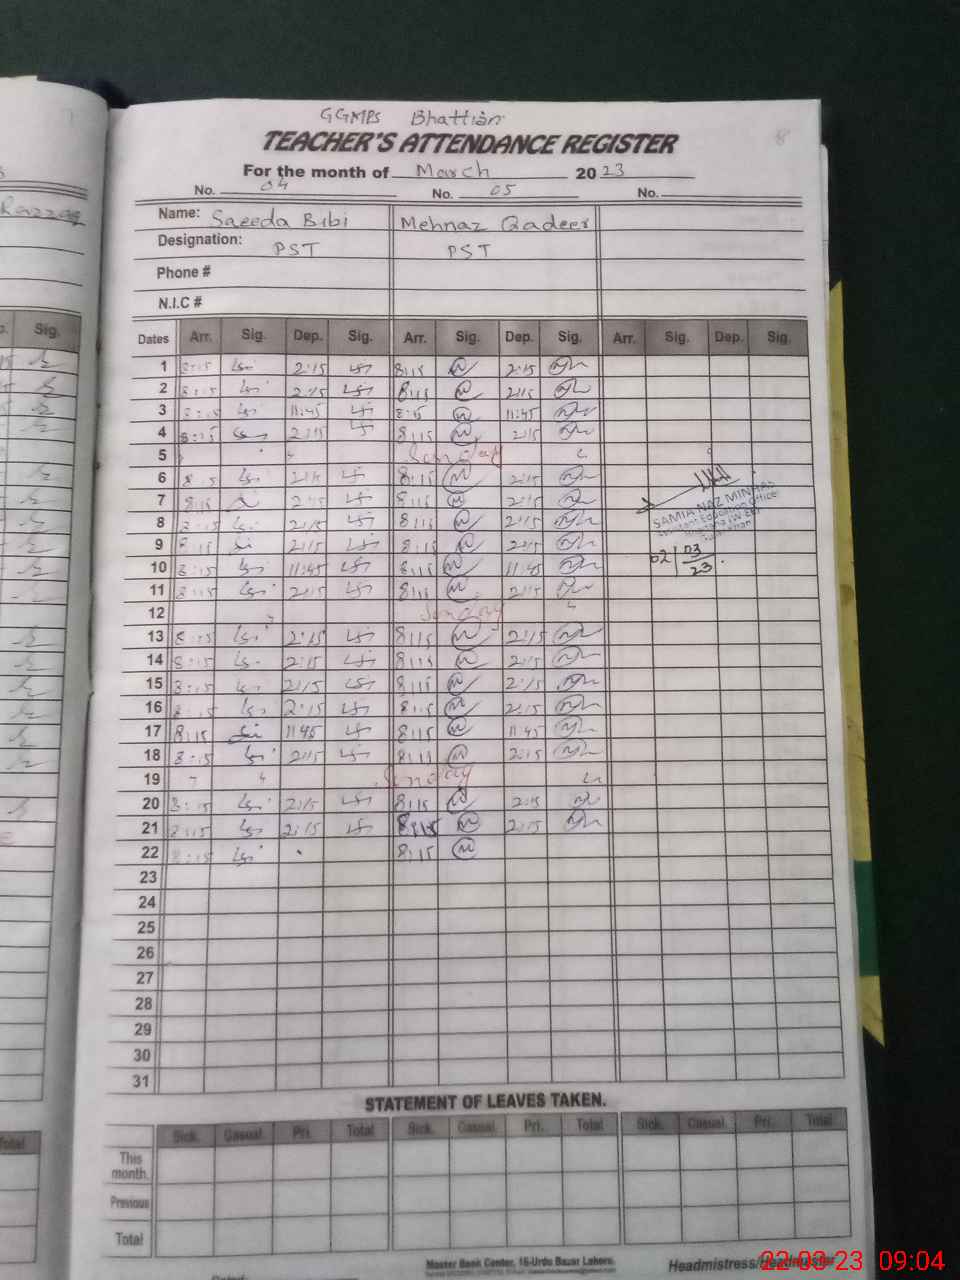 GGMPS Bhattian
TEACHER'S ATTENDANCE REGISTER
For the month of March 2023
No. 04 No. 05 No.
Name: Saeeda Bibi Mehnaz Qadeer
Designation: PST PST
Phone #
N.I.C #
Dates Arr. Sig. Dep. Sig. Arr. Sig. Dep. Sig. Arr. Sig. Dep. Sig.
1 8:15 2:15 8:15 2:15
2 8:15 2:15 8:15 2:15
3 8:15 11:45 8:15 11:45
4 8:15 2:15 8:15 2:15
5 Sunday
6 8:15 2:15 8:15 2:15
7 8:15 2:15 8:15 2:15
8 8:15 2:15 8:15 2:15
9 8:15 2:15 8:15 2:15
10 8:15 11:45 8:15 11:45
11 8:15 2:15 8:15 2:15
12 Sunday
13 8:15 2:15 8:15 2:15
14 8:15 2:15 8:15 2:15
15 8:15 2:15 8:15 2:15
16 8:15 2:15 8:15 2:15
17 8:15 11:45 8:15 11:45
18 8:15 2:15 8:15 2:15
19 Sunday
20 8:15 2:15 8:15 2:15
21 8:15 2:15 8:15 2:15
22 8:15 8:15
23
24
25
26
27
28
29
30
31
SAMIA NAZ MINHAS
Assistant Education Officer
02/03/23
STATEMENT OF LEAVES TAKEN.
Sick. Casual. Pri. Total Sick. Casual. Pri. Total Sick. Casual. Pri. Total
This month.
Previous
Total
Master Book Center, 16-Urdu Bazar Lahore.
Headmistress/Headmaster
22-03-23 09:04